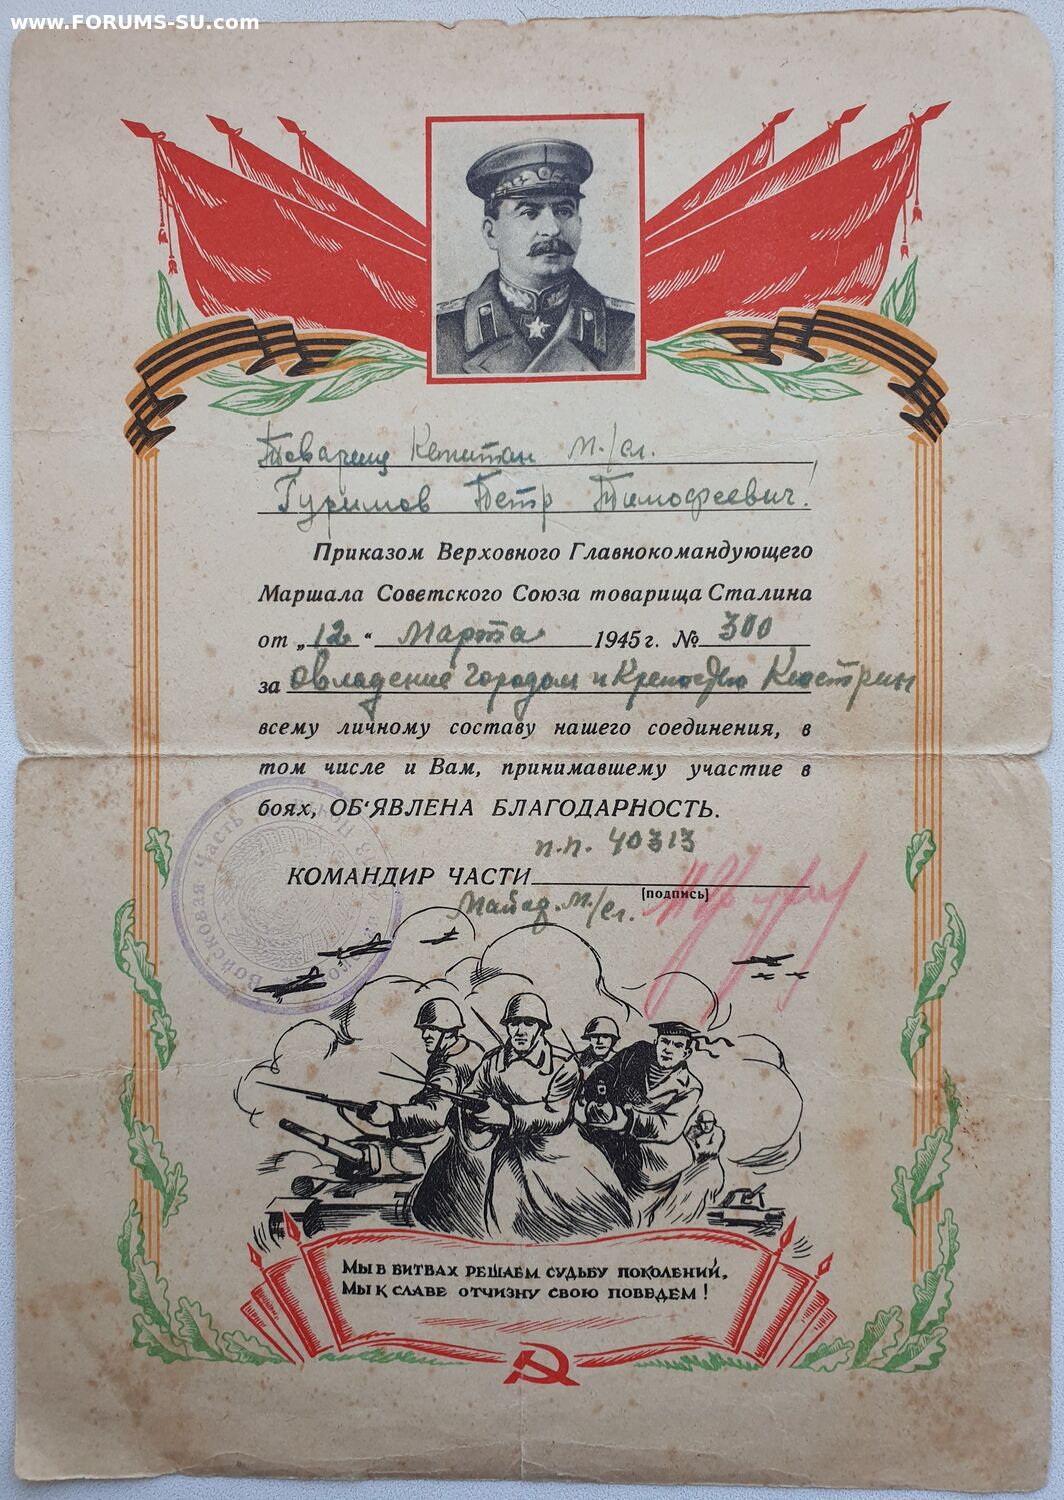 www.FORUMS-SU.com
Товарищ Капитан м./сл.
Гуримов Петр Тимофеевич!
Приказом Верховного Главнокомандующего
Маршала Советского Союза товарища Сталина
от „12“ Марта 1945 г. № 300
за овладение городом и крепостью Кюстрин
всему личному составу нашего соединения, в
том числе и Вам, принимавшему участие в
боях, ОБ'ЯВЛЕНА БЛАГОДАРНОСТЬ.
п.п. 40313
КОМАНДИР ЧАСТИ
(подпись)
м./сл.
Войсковая часть
МЫ В БИТВАХ РЕШАЕМ СУДЬБУ ПОКОЛЕНИЙ,
МЫ К СЛАВЕ ОТЧИЗНУ СВОЮ ПОВЕДЕМ!